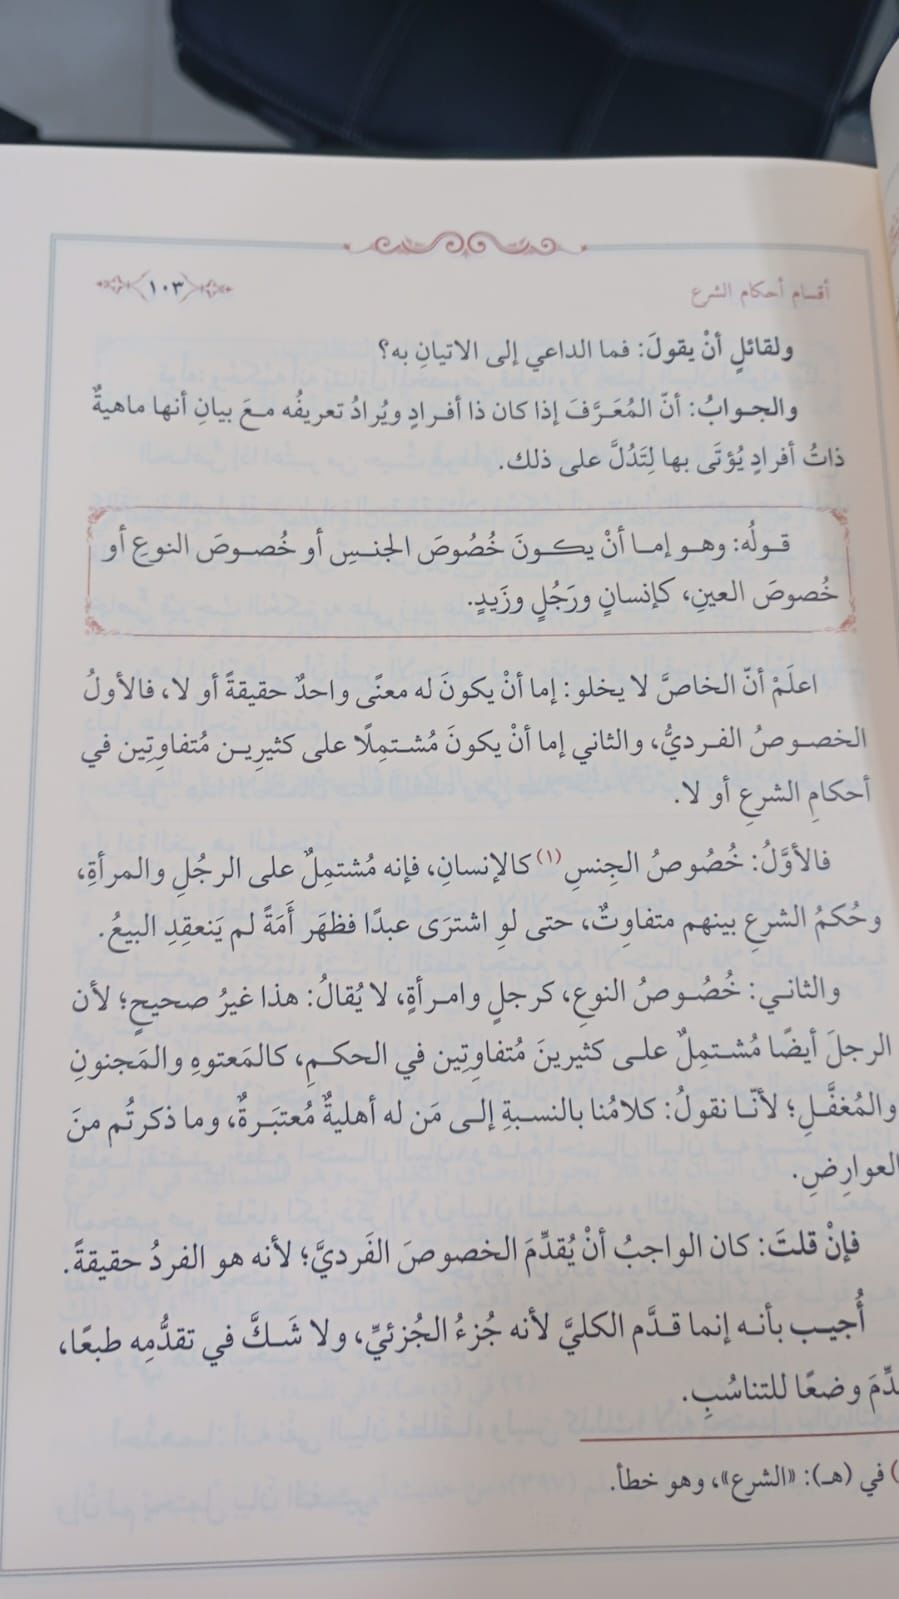 أقسام أحكام الشرع
١٠٣
ولقائلٍ أنْ يقولَ: فما الداعي إلى الاتيانِ به؟
والجوابُ: أنّ المُعَرَّفَ إذا كان ذا أفرادٍ ويُرادُ تعريفُه معَ بيانِ أنها ماهيةٌ
ذاتُ أفرادٍ يُؤتَى بها لِتَدُلَّ على ذلك.
قولُه: وهو إما أنْ يكونَ خُصُوصَ الجنسِ أو خُصوصَ النوعِ أو
خُصوصَ العينِ، كإنسانٍ ورَجُلٍ وزَيدٍ.
اعلَمْ أنّ الخاصَّ لا يخلو: إما أنْ يكونَ له معنًى واحدٌ حقيقةً أو لا، فالأولُ
الخصوصُ الفرديُّ، والثاني إما أنْ يكونَ مُشتمِلًا على كثيرِين مُتفاوتِين في
أحكامِ الشرعِ أو لا.
فالأوَّلُ: خُصُوصُ الجِنسِ (١) كالإنسانِ، فإنه مُشتمِلٌ على الرجُلِ والمرأةِ،
وحُكمُ الشرعِ بينهم متفاوِتٌ، حتى لوِ اشترَى عبدًا فظهَر أَمَةً لم يَنعقِدِ البيعُ.
والثاني: خُصُوصُ النوعِ، كرجلٍ وامرأةٍ، لا يُقالُ: هذا غيرُ صحيحٍ؛ لأن
الرجلَ أيضًا مُشتمِلٌ على كثيرينَ مُتفاوتِين في الحكمِ، كالمَعتوهِ والمَجنونِ
والمُغفَّلِ؛ لأنّا نقولُ: كلامُنا بالنسبةِ إلى مَن له أهليةٌ مُعتبَرةٌ، وما ذكرتُم منَ
العوارِضِ.
فإنْ قلتَ: كان الواجبُ أنْ يُقدِّمَ الخصوصَ الفَرديَّ؛ لأنه هو الفردُ حقيقةً.
أُجيب بأنه إنما قدَّم الكليَّ لأنه جُزءُ الجُزئيِّ، ولا شَكَّ في تقدُّمِه طبعًا،
دِّمَ وضعًا للتناسُبِ.
) في (هـ): «الشرع»، وهو خطأ.